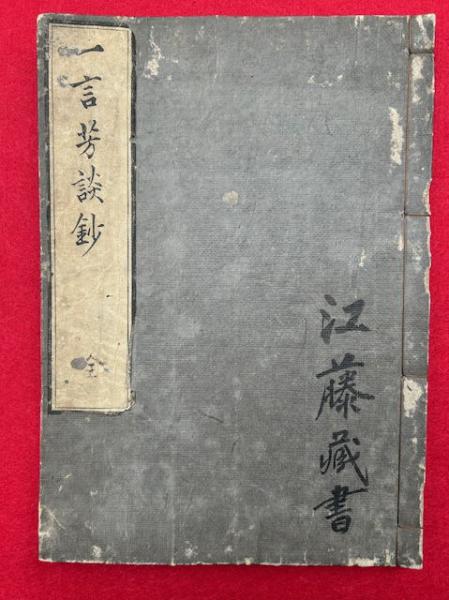 一言芳談鈔
全
江藤蔵書